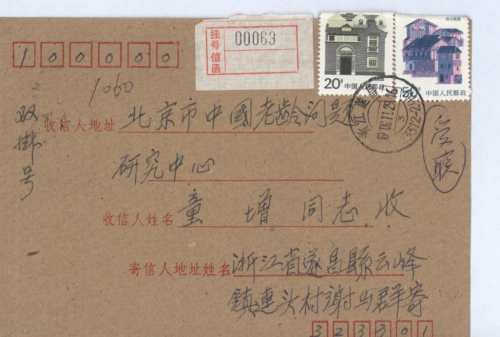 挂号信函
00063
20分
中国人民邮政
50分
中国人民邮政
100000
1060
双掛号
收信人地址 北京市中國老龄问题
研究中心
收信人姓名 童增同志收
寄信人地址姓名 浙江省遂昌縣云峰
镇連头村谢山群寄
323301